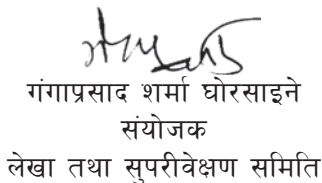 गंगाप्रसाद शर्मा घोरसाइने
संयोजक
लेखा तथा सुपरीवेक्षण समिति